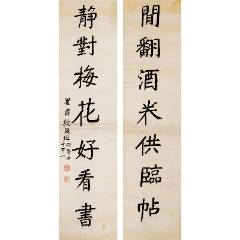 閒翻酒米供臨帖
靜對梅花好看書